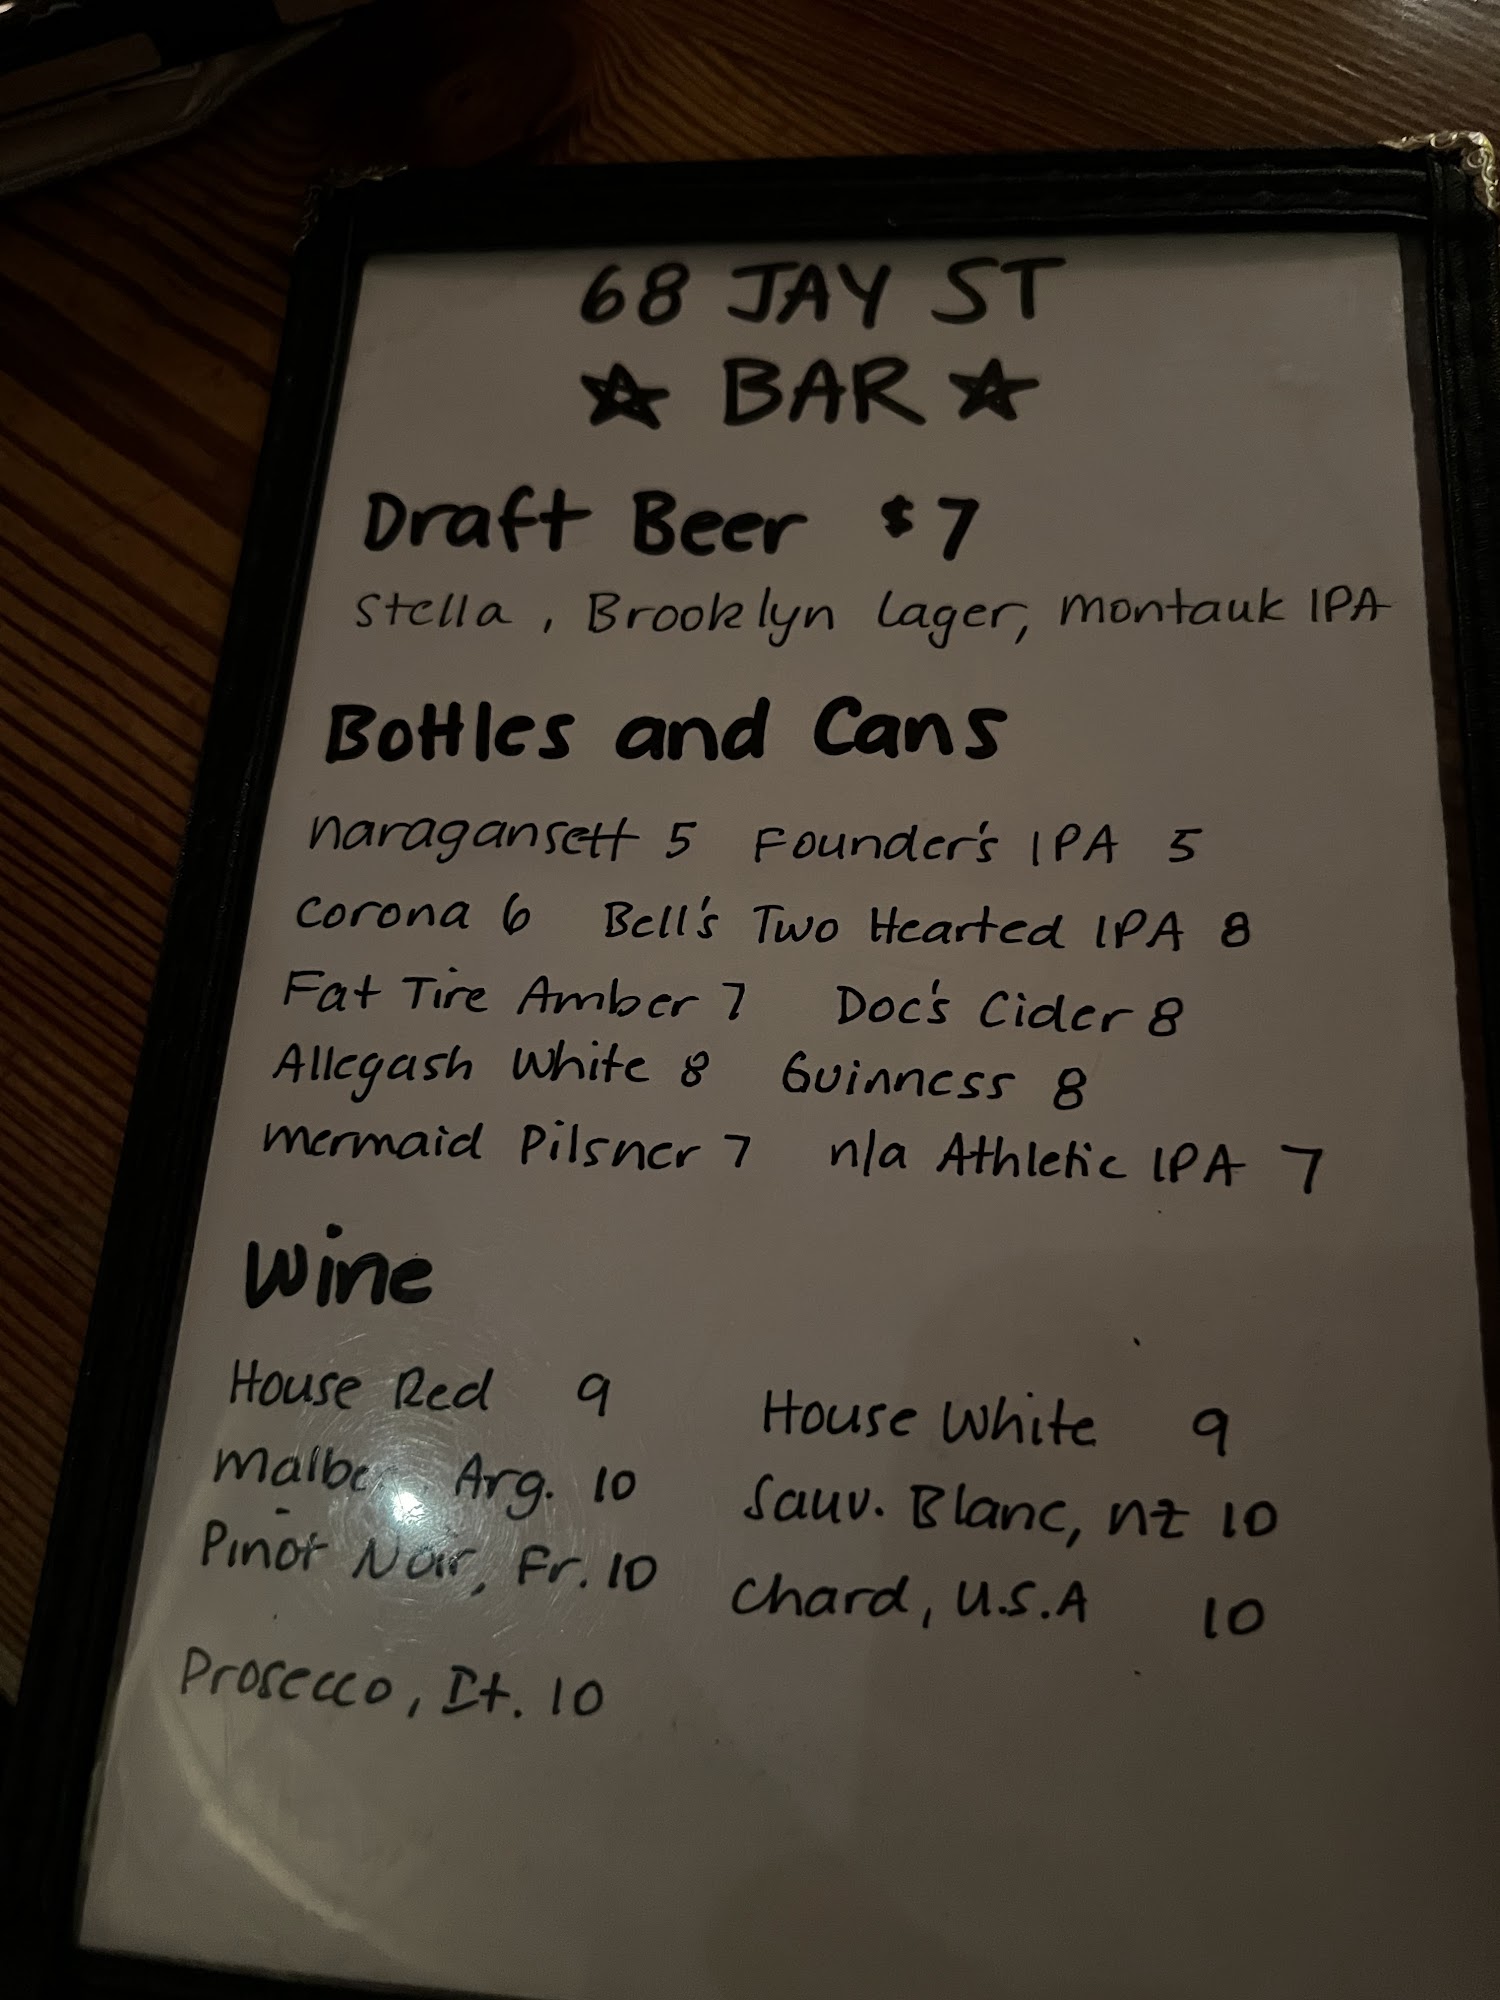 68 JAY ST
☆ BAR ☆
Draft Beer $7
Stella, Brooklyn Lager, Montauk IPA
Bottles and Cans
Naragansett 5 Founder's IPA 5
Corona 6 Bell's Two Hearted IPA 8
Fat Tire Amber 7 Doc's Cider 8
Allegash White 8 Guinness 8
Mermaid Pilsner 7 n/a Athletic IPA 7
Wine
House Red 9 House White 9
Arg. 10 Sauv. Blanc, NZ 10
Pinot Noir, Fr. 10 Chard, U.S.A 10
Prosecco, It. 10